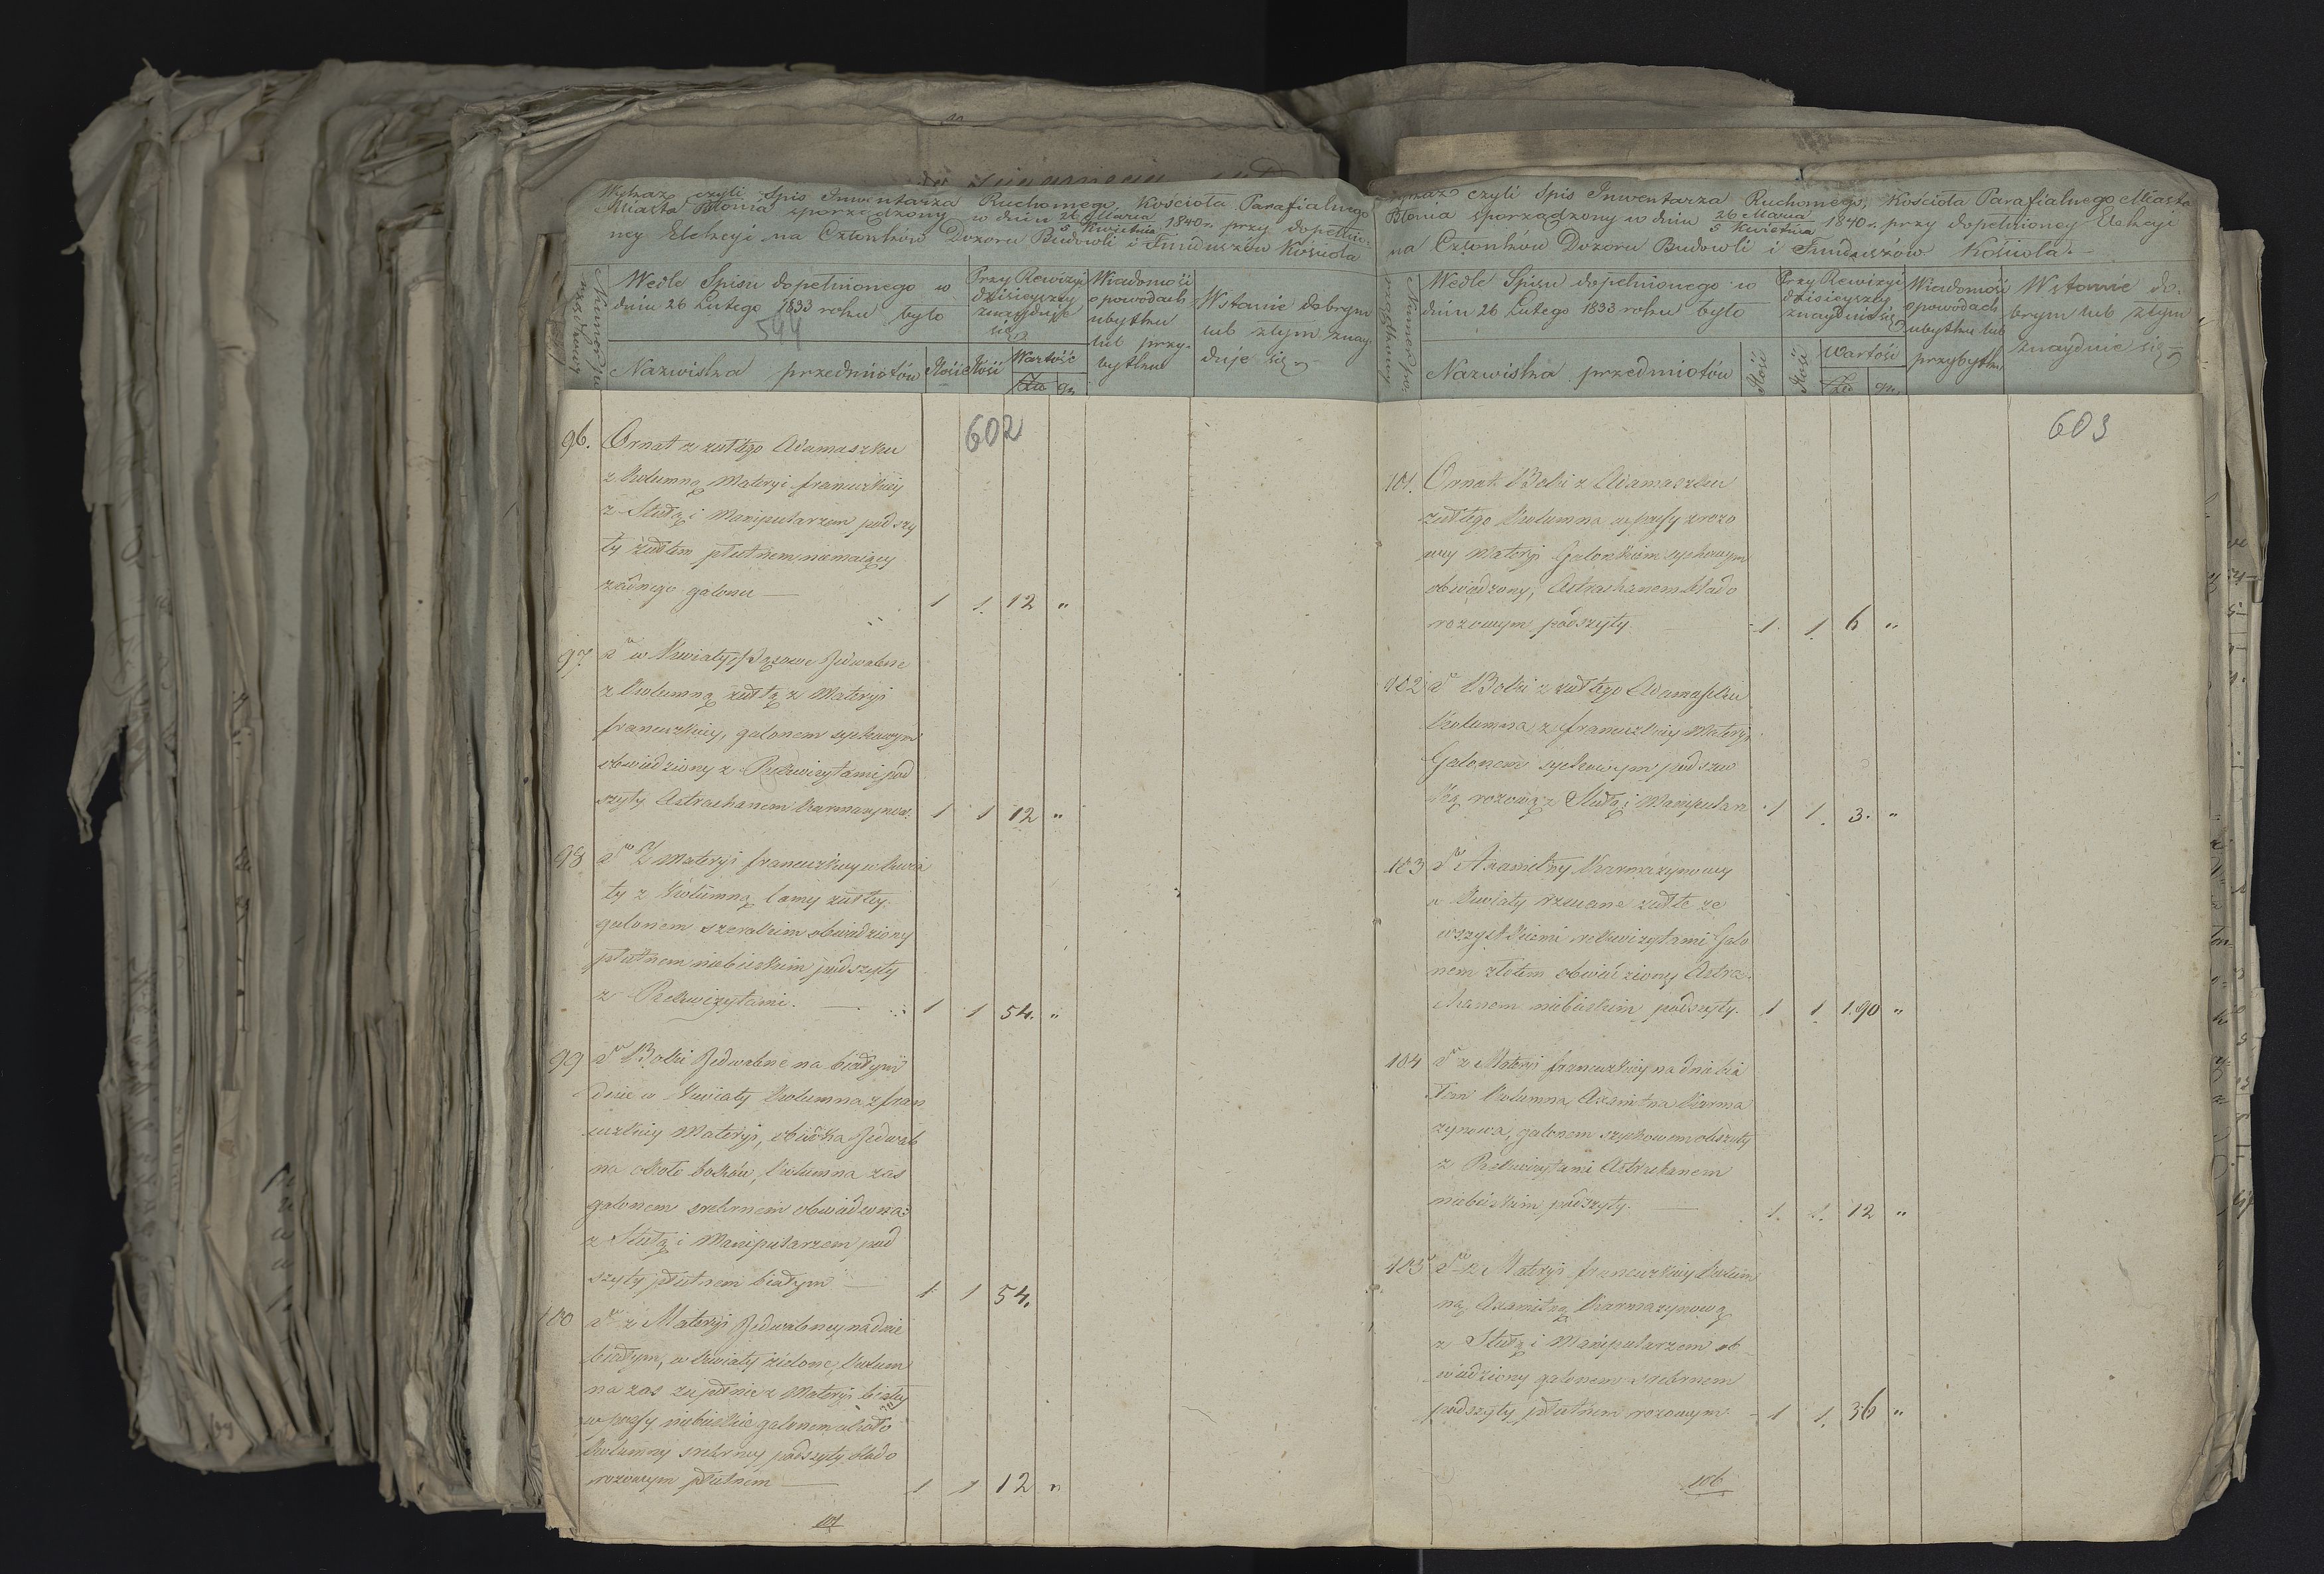 Wykaz czyli Spis Inwentarza Ruchomego, Kościoła Parafialnego
Miasta Błonia sporządzony w dniu 26 Marca / 5 Kwietnia 1840 r. przy dopełnio-
ney Elekcyi na Członków Dozoru Budowli i Funduszów Kościoła
Numer po-
rządkowy
Wedle Spisu dopełnionego w
dniu 26 Lutego 1833 roku było
544
Nazwiska przedmiotów
Ilość
Przy Rewizyi
dzisieyszey
znayduje
się
Ilość
Wartość
Złp
gr.
Wiadomość
o powodach
ubytku
lub przy-
bytku
W stanie dobrym
lub złym znay-
duje się
602
96. Ornat z żułtego Adamaszku
z Kolumną Materyi francuzkiey
z Stułą i Manipularzem podszy
ty żułtem płutnem niemaiący
żadnego galonu — 1 1. 12 "
97 do w Kwiaty Jedwabne
z Kolumną żułtą z Materyi
francuzkiey, galonem sychowym
obwiedziony z Rekwizytami pod
szyty Astrachanem Karmazynow. 1 1 12 "
98 do Z Materyi francuzkiey w kwia
ty z Kolumną lamy żułtey
galonem szerokim obwiedziony
płutnem niebieskim podszyty
z Rekwizytami. — 1 1 54. "
99 do Boki Jedwabne na białym
dnie w Kwiaty Kolumna z fran
cuzkiey Materyi, Jedwab
na około boków, Kolumna zas
galonem srebrnem obwiedziona
z Stułą i Manipularzem pod
szyty płutnem białym — 1 1 54.
100 do z Materyi Jedwabney na dnie
białym, w kwiaty zielone, Kolum
na zas zupełnie z Materyi białey
w pasy niebieskie galonem około
Kolumny srebrney podszyty blado
rozowym płutnem — 1 1 12 "
101
Wykaz czyli Spis Inwentarza Ruchomego, Kościoła Parafialnego Miasta
Błonia sporządzony w dniu 26 Marca / 5 Kwietnia 1840 r. przy dopełnioney Elekcyi
na Członków Dozoru Budowli i Funduszów Kościoła. —
Numer po-
rządkowy
Wedle Spisu dopełnionego w
dniu 26 Lutego 1833 roku było
Nazwiska przedmiotów
Ilość
Przy Rewizyi
dzisieyszey
znayduie się
Ilość
Wartość
Złp
gr.
Wiadomość
o powodach
ubytku lub
przybytku
W stanie do-
brym lub złym
znayduie się
603
101. Ornat Boki z Adamaszku
żułtego Kolumna w pasy z rozo
wey Materyi Galonkiem sychowym
obwiedzony, Astrachanem blado
rozowym podszyty. 1. 1. 6 "
102 do Boki z żułtego Adamaszku
Kolumna z francuzkiey Materyi
Galonem sychowym podszew
ką rozową z Stułą i Manipularz 1 1. 3. "
103 do Axamitny Karmazynowy
w Kwiaty rzucane żułte ze
wszystkiemi rekwizytami Galo
nem złotem obwiedziony Astra-
chanem niebieskim podszyty. 1 1. 190 "
104 do z Materyi francuzkiey na dnie bia
łem Kolumna Axamitna Karma
zynowa, galonem szychowem obszyty
z Rekwizytami Astrachanem
niebieskim podszyty. — 1. 1. 12 "
105 do z Materyi francuzkiey Kolum
ną Axamitną Karmazynową
z Stułą i Manipularzem ob
wiedziony galonem srebrnem
podszyty płutnem rozowym. 1 1. 36 "
106